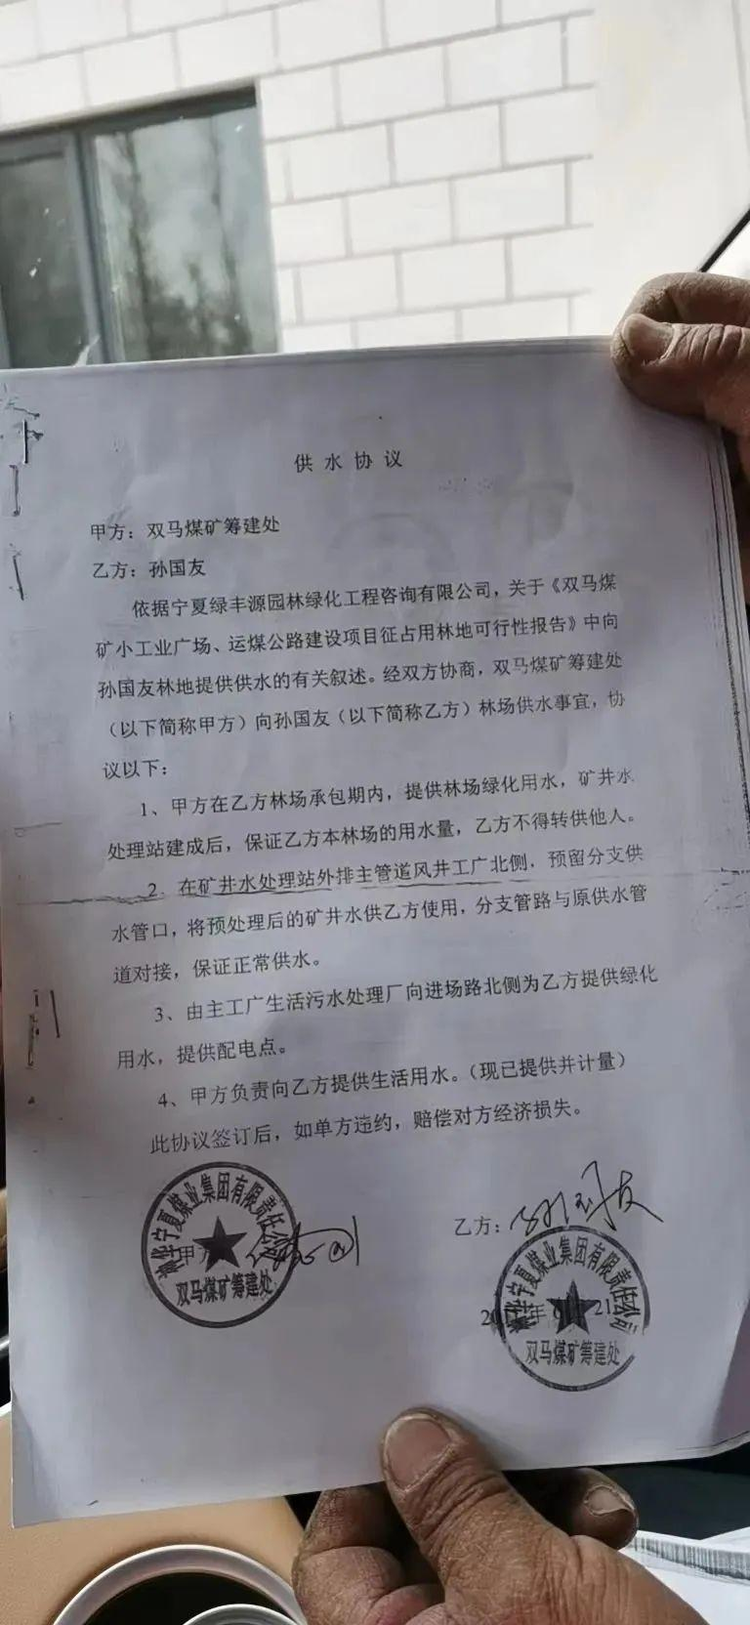 供水协议
甲方：双马煤矿筹建处
乙方：孙国友
依据宁夏绿丰源园林绿化工程咨询有限公司，关于《双马煤
矿小工业广场、运煤公路建设项目征占用林地可行性报告》中向
孙国友林地提供供水的有关叙述。经双方协商，双马煤矿筹建处
（以下简称甲方）向孙国友（以下简称乙方）林场供水事宜，协
议以下：
1、甲方在乙方林场承包期内，提供林场绿化用水，矿井水
处理站建成后，保证乙方本林场的用水量，乙方不得转供他人。
2、在矿井水处理站外排主管道风井工广北侧，预留分支供
水管口，将预处理后的矿井水供乙方使用，分支管路与原供水管
道对接，保证正常供水。
3、由主工广生活污水处理厂向进场路北侧为乙方提供绿化
用水，提供配电点。
4、甲方负责向乙方提供生活用水。（现已提供并计量）
此协议签订后，如单方违约，赔偿对方经济损失。
神华宁夏煤业集团有限责任公司
甲方
双马煤矿筹建处
乙方：孙国友
神华宁夏煤业集团有限责任公司
年
双马煤矿筹建处